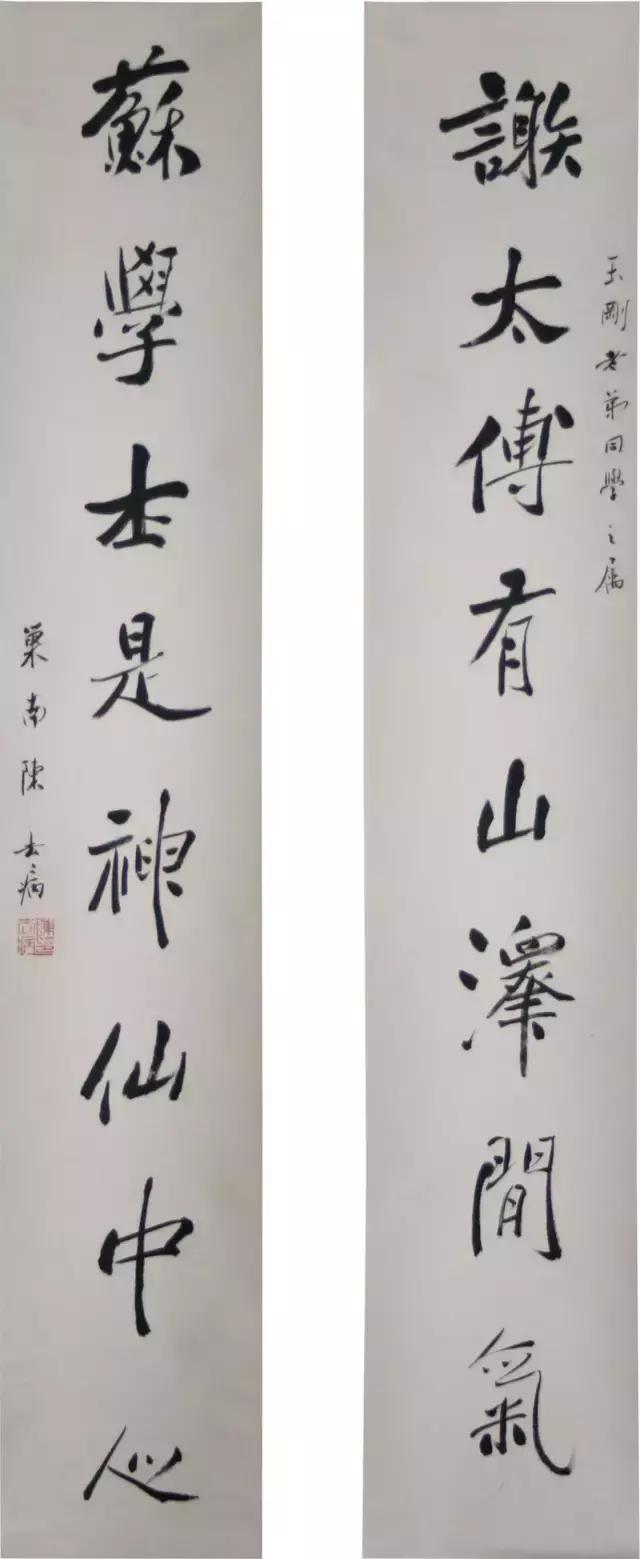 玉剛老弟同學之屬
謝太傅有山澤閒氣
蘇學士是神仙中人
巢南陳去病